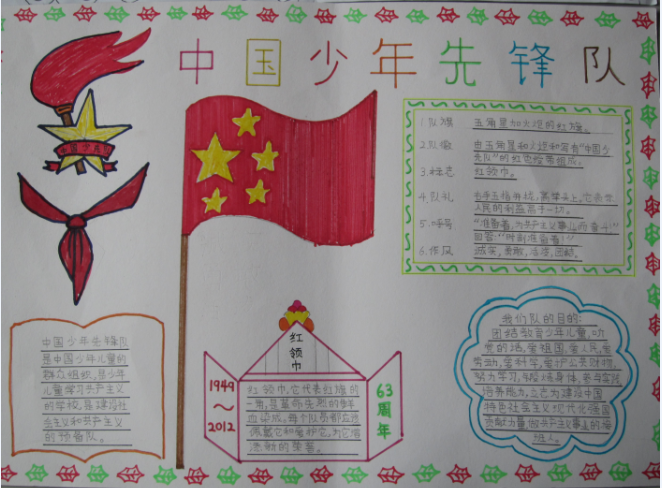 中国少年先锋队
中国少先队
1.队旗 五角星加火炬的红旗。
2.队徽 由五角星和火炬和写有"中国少
先队"的红色绶带组成。
3.标志 红领巾。
4.队礼 右手五指并拢,高举头上,它表示
人民的利益高于一切。
5.呼号 "准备着,为共产主义事业而奋斗!"
回答:"时刻准备着!"
6.作风 诚实,勇敢,活泼,团结。
中国少年先锋队
是中国少年儿童的
群众组织,是少年
儿童学习共产主义
的学校,是建设社
会主义和共产主义
的预备队。
红领巾
1949~2012
红领巾,它代表红旗的
一角,是革命先烈的鲜
血染成,每个队员都应该
佩戴它和爱护它,为它增
添新的荣誉。
63周年
我们队的目的:
团结教育少年儿童,听
党的话,爱祖国,爱人民,爱
劳动,爱科学,爱护公共财物,
努力学习,锻炼身体,参与实践,
培养能力,立志为建设中国
特色社会主义现代化强国
贡献力量,做共产主义事业的接
班人。